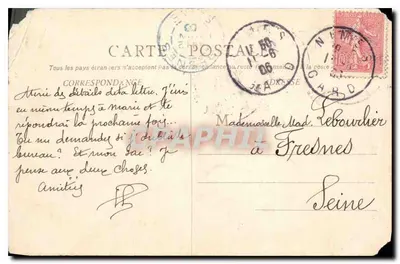 CARTE POSTALE
Tous les pays étrangers n'acceptent pas
CORRESPONDANCE
ADRESSE
NIMES
GARD
06
NIMES
GARD
Merci de détails de ta lettre. J'écris
en même temps à Marie et te
répondrai la prochaine fois.
Tu me demandes si
bureau? Et mon sac! Je
pense aux deux choses.
Amitiés
Mademoiselle Mad. Lebourlier
à Fresnes
Seine